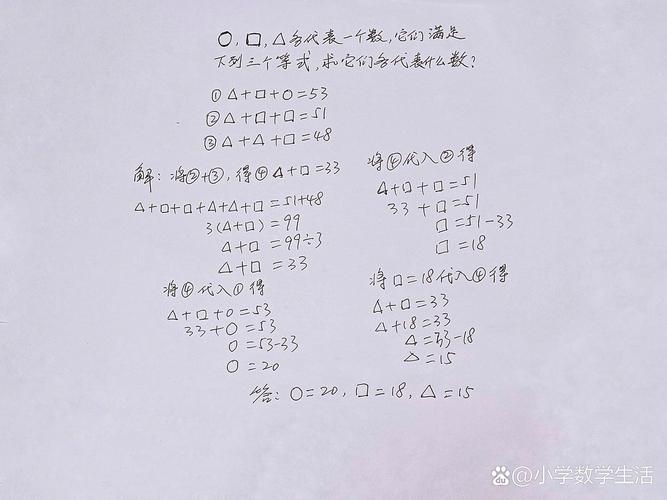 ○,□,△各代表一个数,它们满足
下列三个等式,求它们各代表什么数?
①△+□+○=53
②△+□+□=51
③△+△+□=48
解:将②+③,得④△+□=33
△+□+□+△+△+□=51+48
3(△+□)=99
△+□=99÷3
△+□=33
将④代入①得
△+□+○=53
33+○=53
○=53-33
○=20
将④代入②得
△+□+□=51
33+□=51
□=51-33
□=18
将□=18代入④得
△+□=33
△+18=33
△=33-18
△=15
答:○=20,□=18,△=15
du@小学数学生活